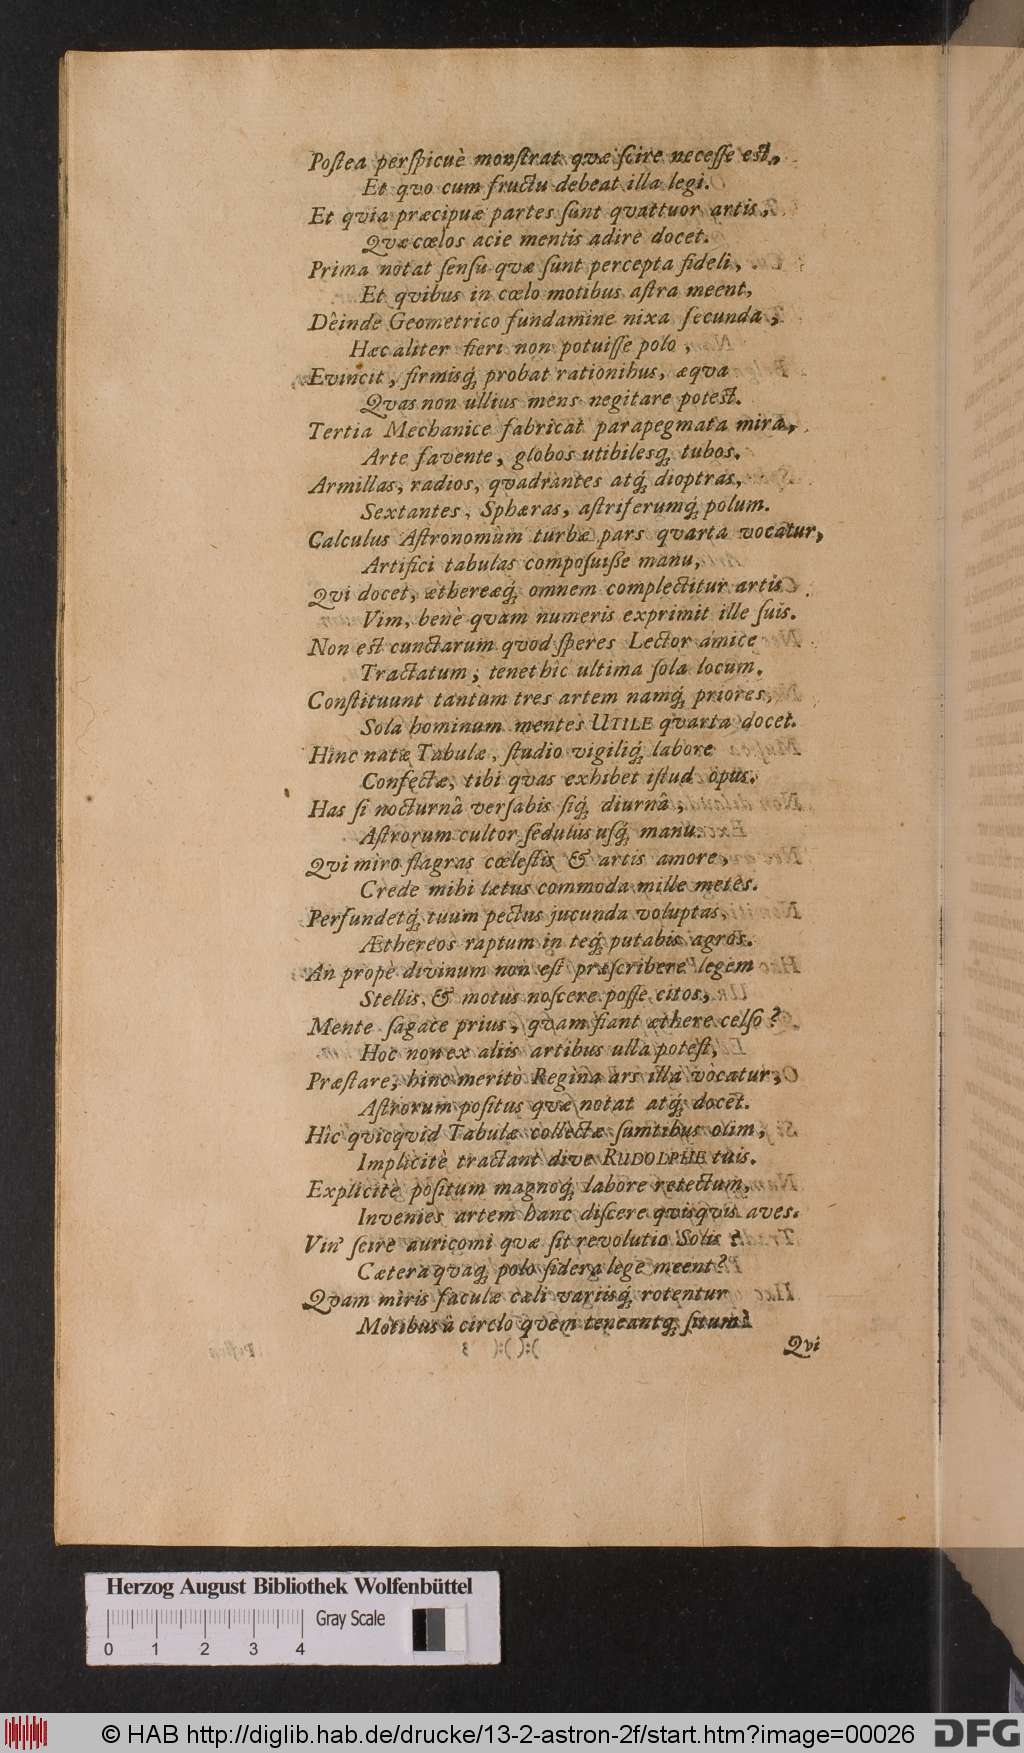 Poſtea perſpicuè monſtrat qvæ ſcire neceſſe eſt,
Et qvo cum fructu debeat illa legi.
Et qvia præcipuæ partes ſunt qvattuor artis,
Qvæ cœlos acie mentis adire docet.
Prima notat ſenſu qvæ ſunt percepta fideli,
Et qvibus in cœlo motibus aſtra meent,
Dêinde Geometrico fundamine nixa ſecunda,
Hæc aliter fieri non potuiſſe polo,
Evincit, firmisq́; probat rationibus, æqva
Qvas non ullius mens negitare poteſt.
Tertia Mechanice fabricat parapegmata mira,
Arte favente, globos utibilesq́; tubos.
Armillas, radios, qvadrantes atq́; dioptras,
Sextantes, Sphæras, aſtriferumq́; polum.
Calculus Aſtronomûm turbæ pars qvarta vocatur,
Artifici tabulas compoſuiſſe manu,
Qvi docet, æthereæq́; omnem complectitur artis
Vim, benè qvam numeris exprimit ille ſuis.
Non eſt cunctarum quod ſperes Lector amice
Tractatum, tenet hîc ultima ſola locum.
Conſtituunt tantùm tres artem namq́; priores,
Sola hominum mentes UTILE qvarta docet.
Hinc natæ Tabulæ, ſtudio vigiliq́; labore
Confectæ, tibi qvas exhibet iſtud opus.
Has ſi nocturnâ verſabis ſiq́; diurnâ,
Aſtrorum cultor ſedulus uſq́; manu.
Qvi miro flagras cœleſtis & artis amore,
Crede mihi lætus commoda mille metes.
Perfundetq́; tuum pectus jucunda voluptas,
Æthereos raptum in teq́; putabis agros.
An propè divinum non eſt præſcribere legem
Stellis, & motus noſcere poſſe citos,
Mente ſagace prius, qvam fiant æthere celſo?
Hoc non ex aliis artibus ulla poteſt,
Præſtare, hinc meritò Regina ars illa vocatur,
Aſtrorum poſitus qvæ notat atq́; docet.
Hîc qvicqvid Tabulæ collectæ ſumtibus olim,
Implicitè tractant dive RUDOLPHE tuis.
Explicitè poſitum magnoq́; labore retectum,
Invenies artem hanc diſcere qvisqvis aves.
Vin' ſcire auricomi qvæ ſit revolutio Solis?
Cætera qvaq́; polo ſidera lege meent?
Qvam miris faculæ cæli variisq́; rotentur
Motibus â circlo qvem teneantq́; ſitum?
Qvi
Herzog August Bibliothek Wolfenbüttel
Gray Scale
0 1 2 3 4
© HAB http://diglib.hab.de/drucke/13-2-astron-2f/start.htm?image=00026
DFG